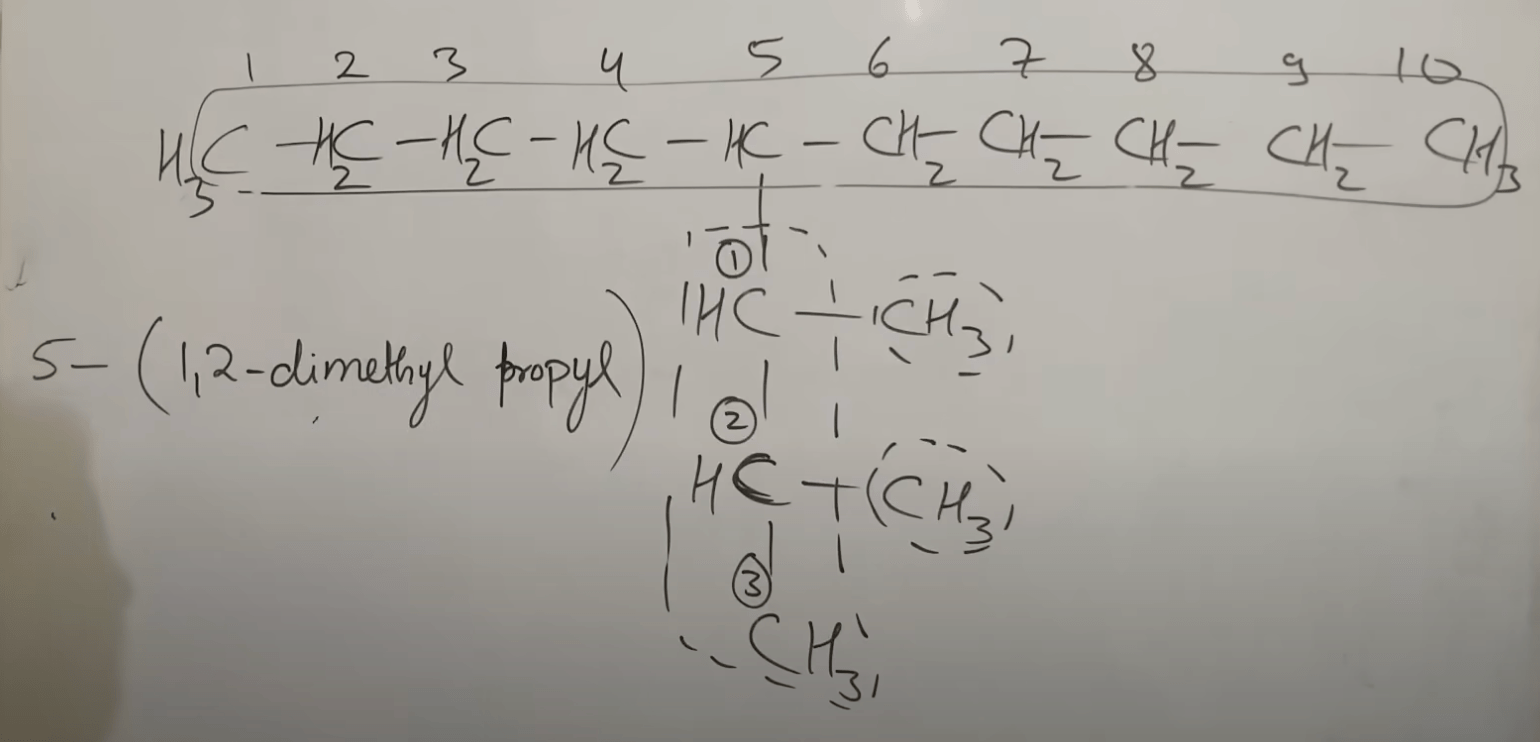 1 2 3 4 5 6 7 8 9 10
H₃C – H₂C – H₂C – H₂C – HC – CH₂ – CH₂ – CH₂ – CH₂ – CH₃
①
HC – CH₃
5 – (1,2-dimethyl propyl)
②
HC – CH₃
③
CH₃